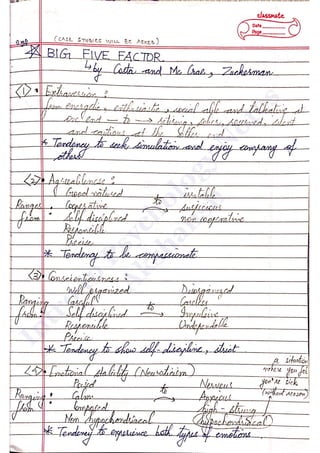 classmate
Date
Page
(CASE STUDIES WILL BE ASKED)
BIG FIVE FACTOR.
↳ by Costa and Mc Crae, Zuckerman
<1> • Extraversion :
from energetic, enthusiastic, social able and talkative at
one end — to → retiring, sober, reserved, silent
and cautious at the other end
* Tendency to seek simulation and enjoy company of
others
<2> • Agreeableness :
Good natured irritable
Ranges Cooperative to suspicious
from : Self disciplined → non cooperative
Responsible
Precise
* Tendency to be compassionate
<3> • Conscientiousness :
Well organized Disorganized
Ranging Careful to Careless
from : Self disciplined → Impulsive
Responsible Undependable
Precise
* Tendency to show self-discipline, strict
a situation
where you feel
you're sick
(without reason)
Emotional stability (Neuroticism)
Poised Nervous
Ranging Calm to Anxious
from : Composed → high-strung
Non hypochondriacal (hypochondriacal)
* Tendency to experience both types of emotions.